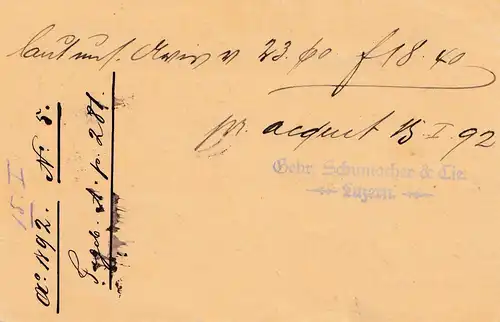 laut uns. Avis v 23. f 18.40
pr. acquit 15. I. 92
Gebr. Schumacher & Cie.
Luzern.
15. I
Ao. 1892. No. 5.
p. 281.